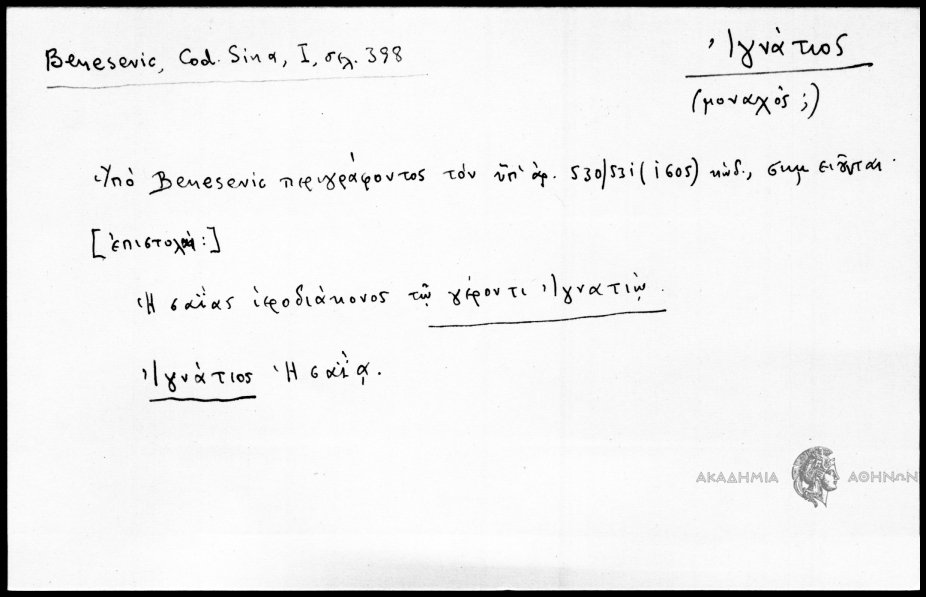 Benesevic, Cod. Sina, I, σελ. 398
Ἰγνάτιος
(μοναχός;)
Ὑπὸ Benesevic περιγράφοντος τὸν ὑπ' ἀρ. 530/531 (1605) κώδ., σημειοῦνται
[ἐπιστολαί:]
Ἡσαΐας ἱεροδιάκονος τῷ γέροντι Ἰγνατίῳ.
Ἰγνάτιος Ἡσαΐᾳ.
ΑΚΑΔΗΜΙΑ ΑΘΗΝΩΝ